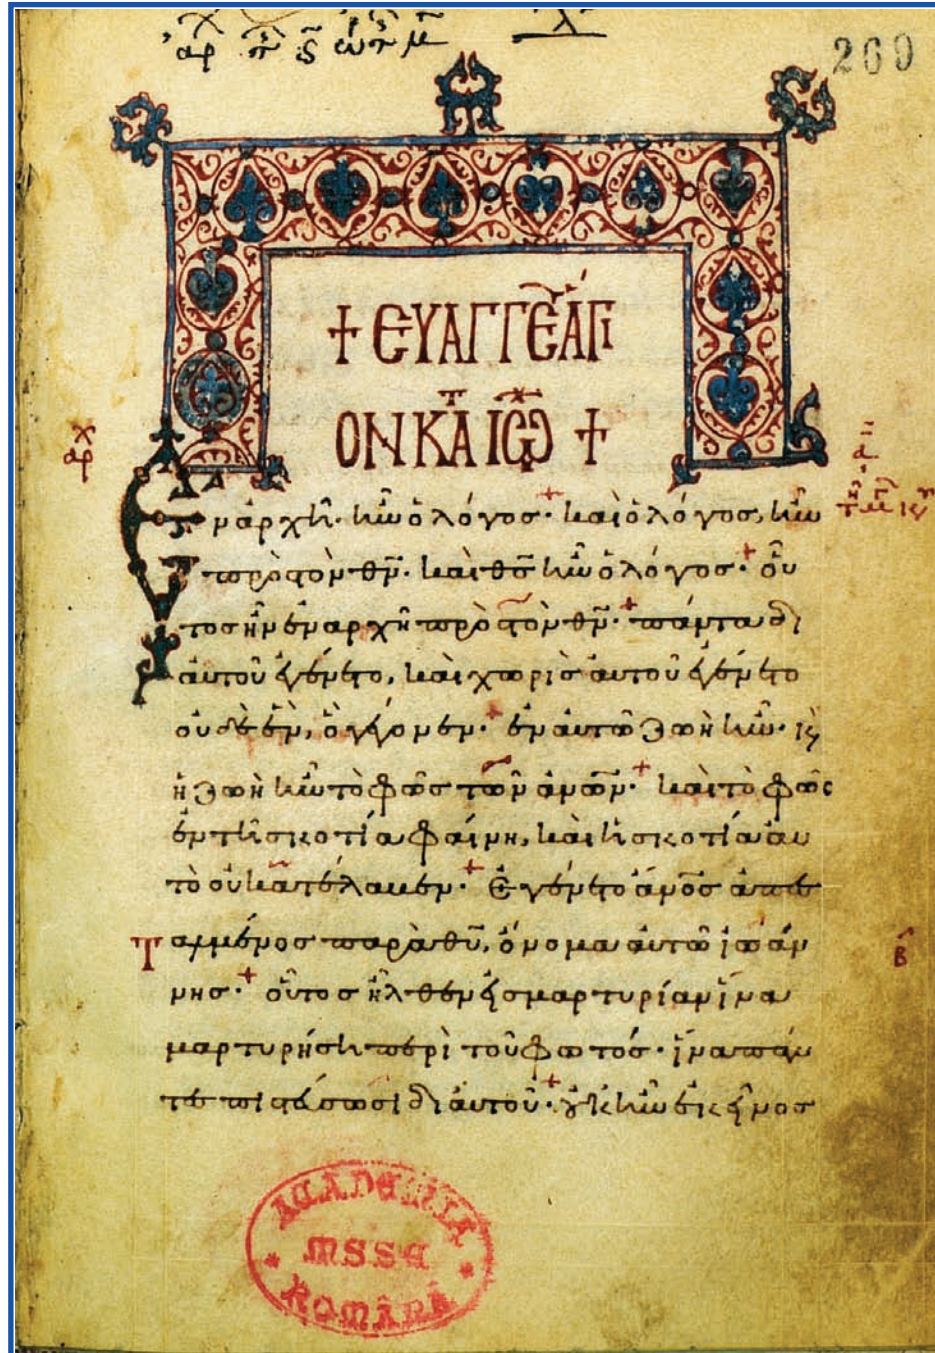 269
+ ΕΥΑΓΓΕΛΙ
ΟΝ ΚΑΤ ΙΩ +
Ἐν ἀρχῆ· ἦν ὁ λόγος· καὶ ὁ λόγος, ἦν
πρὸς τὸν θν· καὶ θς ἦν ὁ λόγος· οὗ
τος ἦν ἐν ἀρχῆ πρὸς τὸν θν· πάντα δι
αὐτοῦ ἐγένετο, καὶ χωρὶς αὐτοῦ ἐγένετο
οὐδὲ ἓν, ὃ γέγονεν· ἐν αὐτῶ ζωὴ ἦν· κ
ἡ ζωὴ ἦν τὸ φῶς τῶν ἀνων· καὶ τὸ φῶς
ἐν τῆ σκοτία φαίνη, καὶ ἡ σκοτία αὐ
τὸ οὐ κατέλαβεν· Ἐγένετο ἀνος ἀπε
σταλμένος παρὰ θυ, ὄνομα αὐτῶ ἰωάν
νης· οὗτος ἦλθεν εἰς μαρτυρίαν ἵνα
μαρτυρήση περὶ τοῦ φωτός· ἵνα πάν
τες πιστεύσωσι δι αὐτοῦ· οὐκ ἦν ἐκεῖνος
β
ACADEMIA
MSSE
ROMÂNĂ